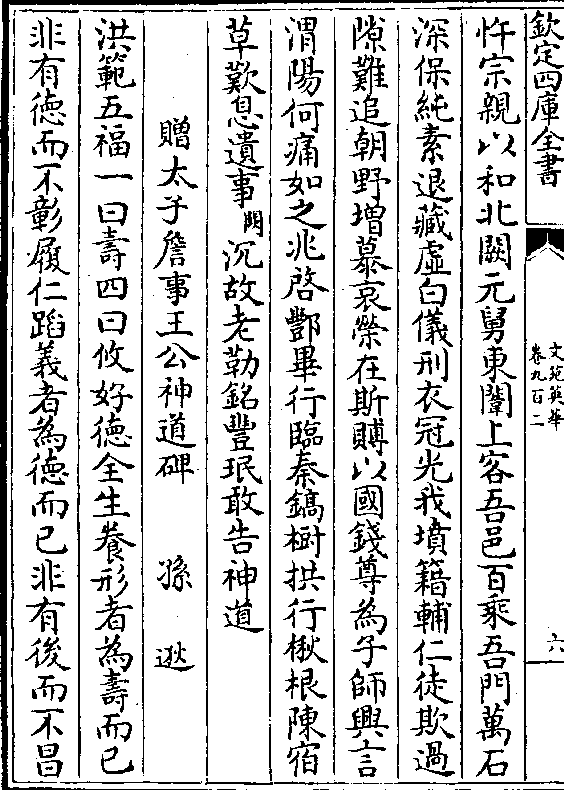 欽定四庫全書
文苑英華
卷九百二
六
忤宗親以和北闕元舅東闈上客吾邑百乘吾門萬石
深保純素退藏虛白儀刑衣冠光我墳籍輔仁徒欺過
隙難追朝野增慕哀榮在斯賻以國錢尊為子師興言
渭陽何痛如之兆啓酆畢行臨秦鎬樹拱行楸根陳宿
草歎息遺事闕沉故老勒銘豐珉敢告神道
贈太子詹事王公神道碑 孫逖
洪範五福一曰壽四曰攸好德全生養形者為壽而已
非有德而不彰履仁蹈義者為德而已非有後而不昌